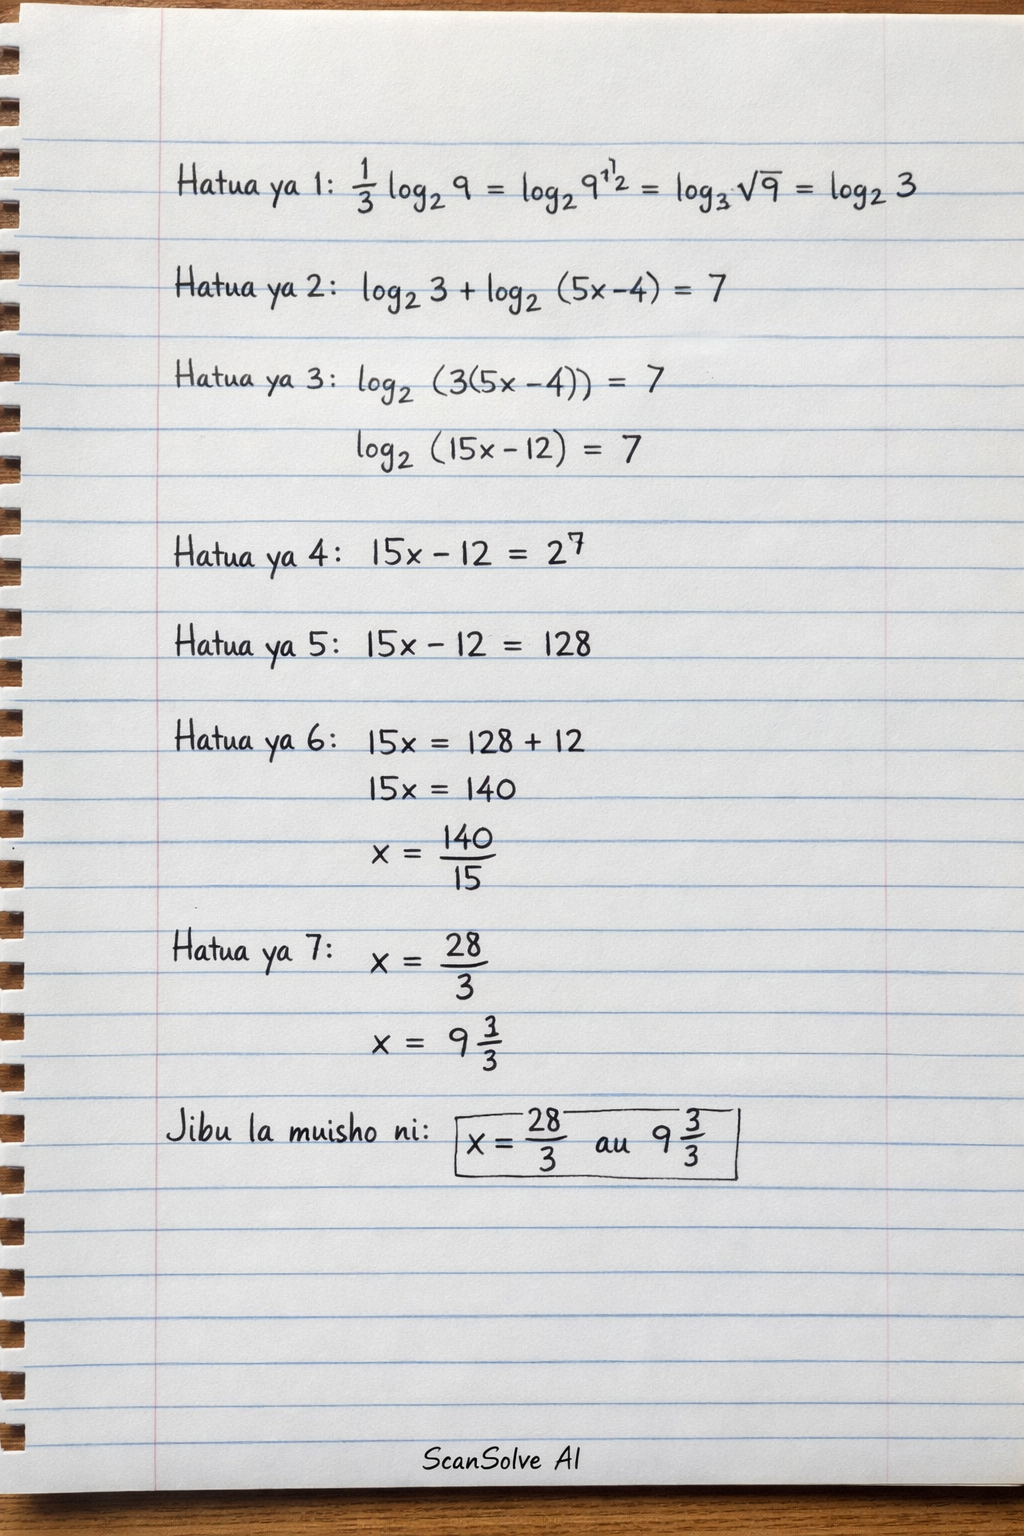 Hatua ya 1: 1/3 log₂ 9 = log₂ 9^1/2 = log₃ √9 = log₂ 3
Hatua ya 2: log₂ 3 + log₂ (5x-4) = 7
Hatua ya 3: log₂ (3(5x-4)) = 7
log₂ (15x-12) = 7
Hatua ya 4: 15x-12 = 2⁷
Hatua ya 5: 15x-12 = 128
Hatua ya 6: 15x = 128 + 12
15x = 140
x = 140/15
Hatua ya 7: x = 28/3
x = 9 3/3
Jibu la muisho ni: x = 28/3 au 9 3/3
ScanSolve AI